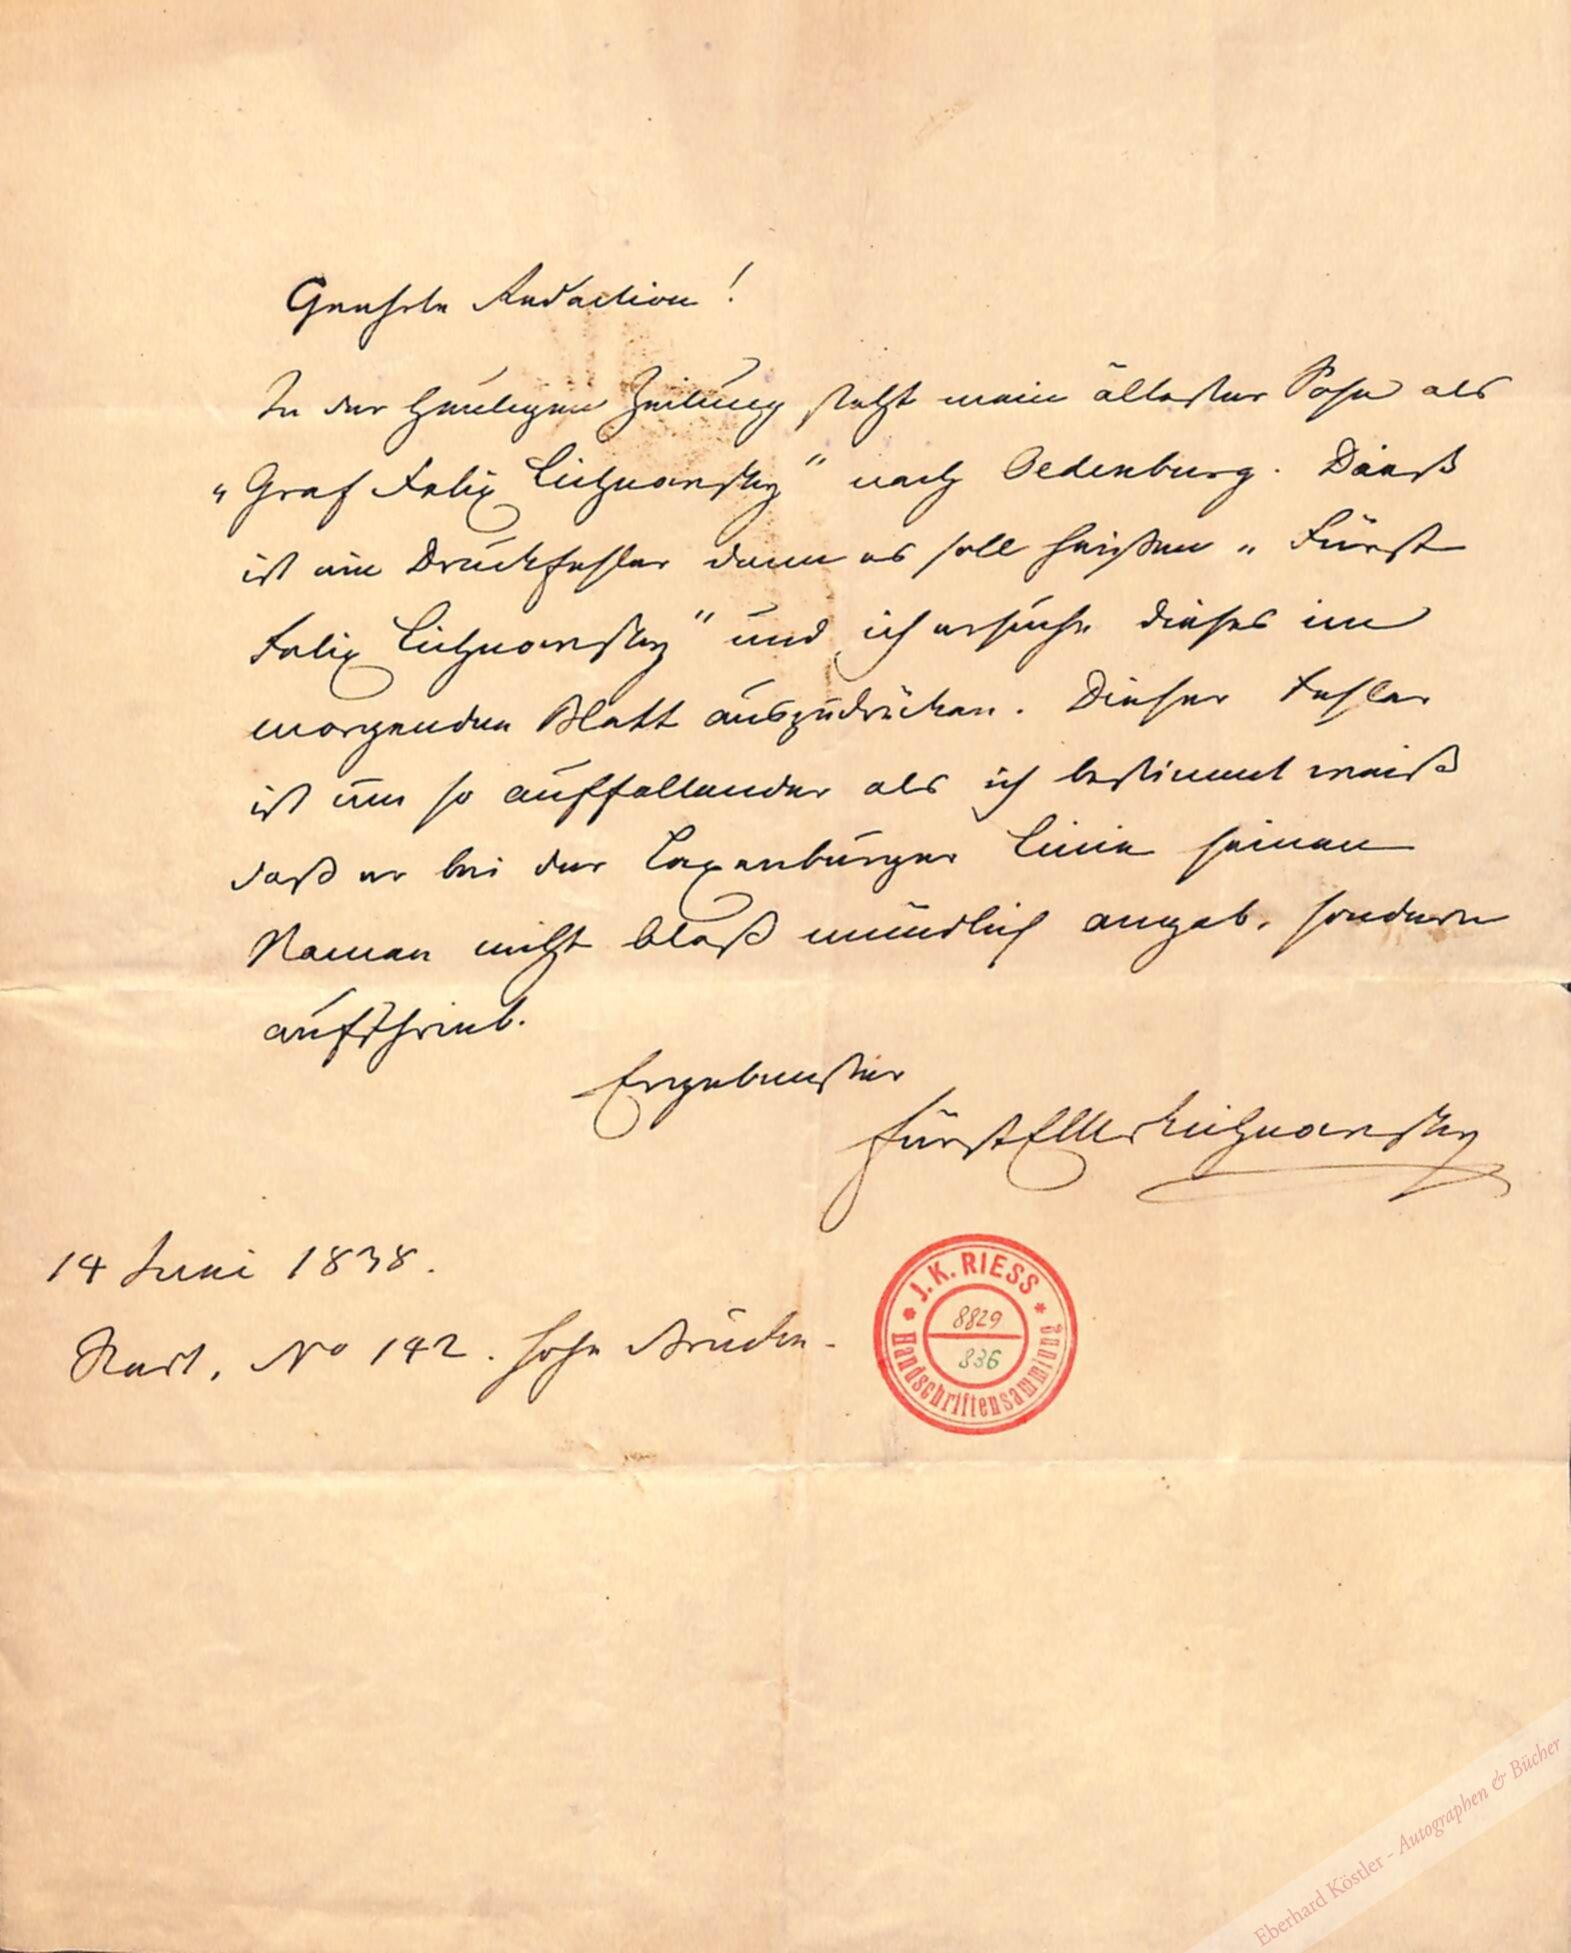 Geehrte Redaction!
In der heutigen Zeitung steht mein ältester Sohn als
„Graf Felix Lichnowsky" nach Oedenburg. Dieß
ist ein Druckfehler denn es soll heißen „Fürst
Felix Lichnowsky" und ich ersuche dieses im
morgenden Blatt auszudrücken. Dieser Fehler
ist um so auffallender als ich bestimmt weiß
daß er bei der Laxenburger Linie seinen
Namen nicht bloß mündlich angab, sondern
aufschrieb.
Ergebenster
Fürst Lichnowsky
14 Juni 1838.
Stadt, No 142. hohe Brücke.
J. K. RIESS
8829
836
Handschriftensammlung
Eberhard Köstler - Autographen & Bücher